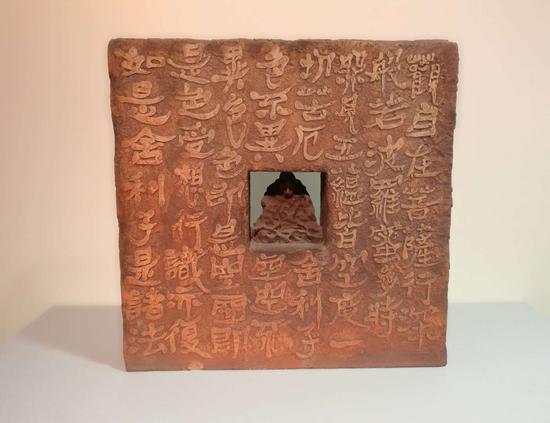 觀自在菩薩行深
般若波羅蜜多時
照見五蘊皆空度一
切苦厄舍利子
色不異空空不
異色色即是空空即
是色受想行識亦復
如是舍利子是諸法